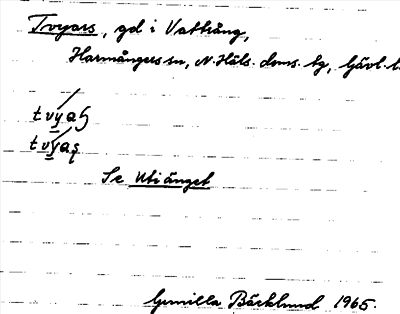 Tvyars, gd i Vattrång,
Harmångers sn, N. Häls. doms. tg, Gävl. l.
tvyaş
tvyaş
Se Utiänget
Gunilla Bäcklund 1965.